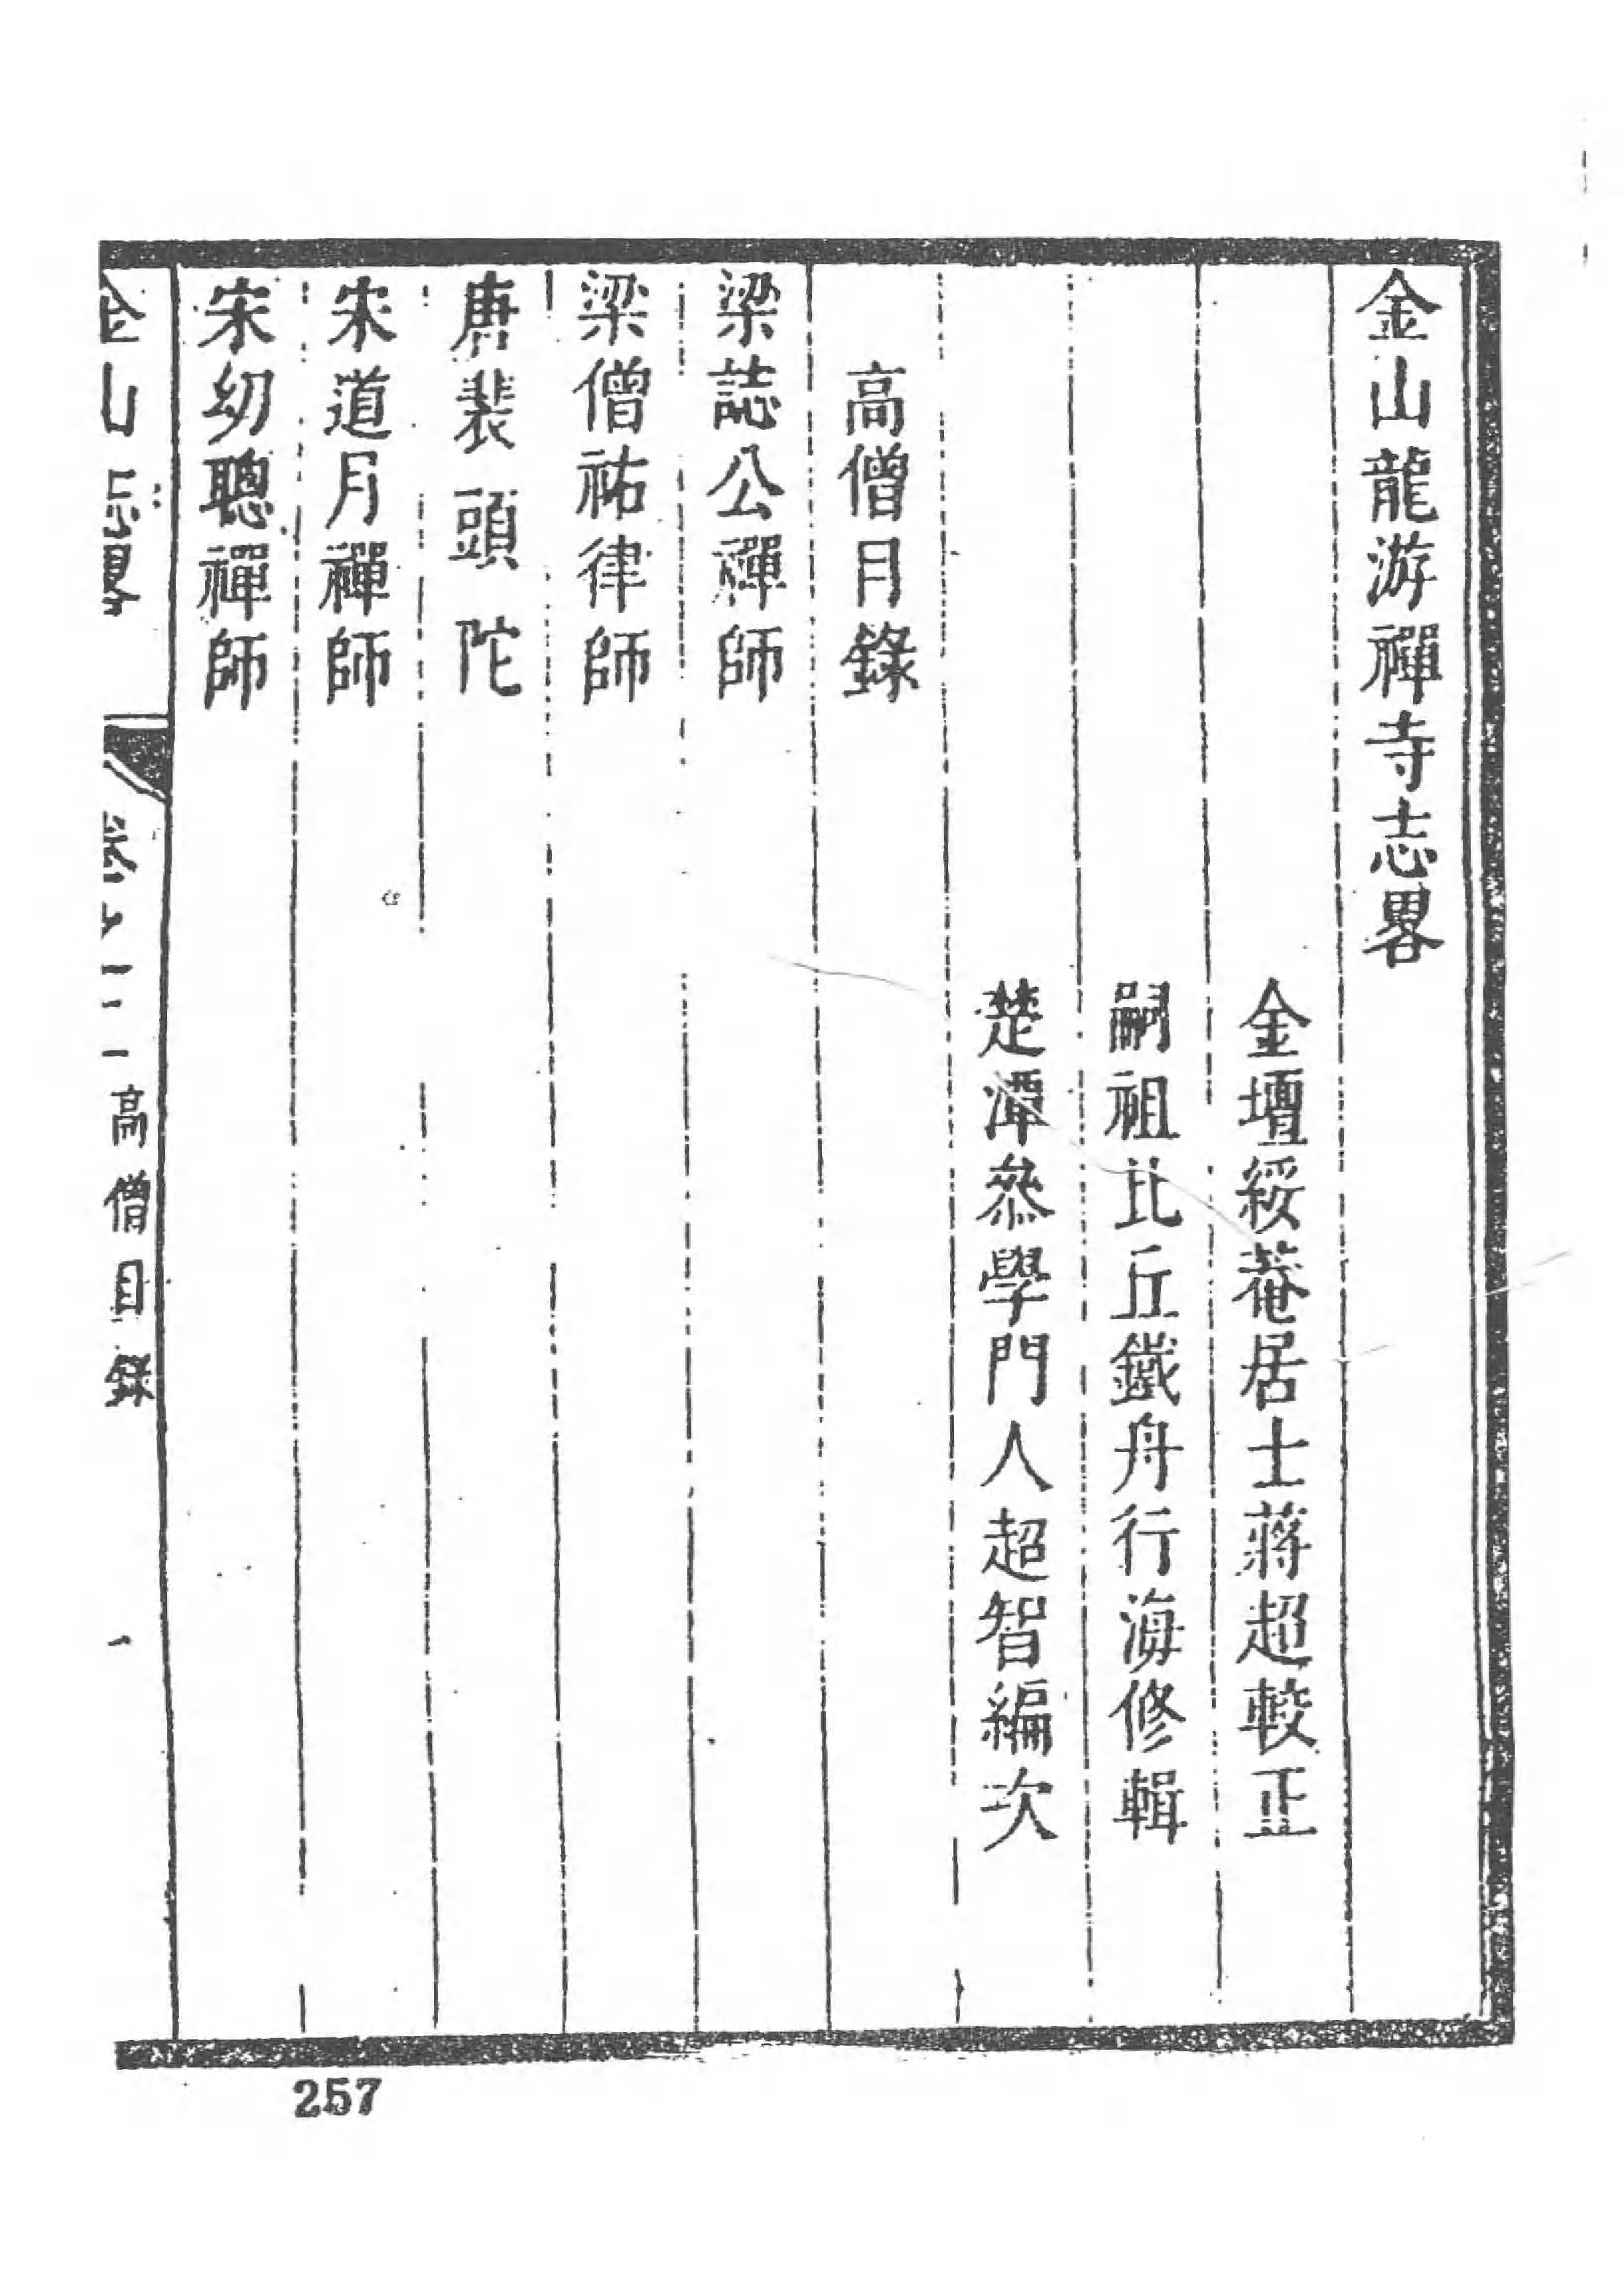 金山龍游禪寺志畧
金壇綏菴居士蔣超較正
嗣祖比丘鐵舟行海修輯
楚潭叅學門人超智編次
高僧目錄
梁誌公禪師
梁僧祐律師
唐裴頭陀
宋道月禪師
宋幼聰禪師
金山志畧
卷之二
高僧目錄
一
257